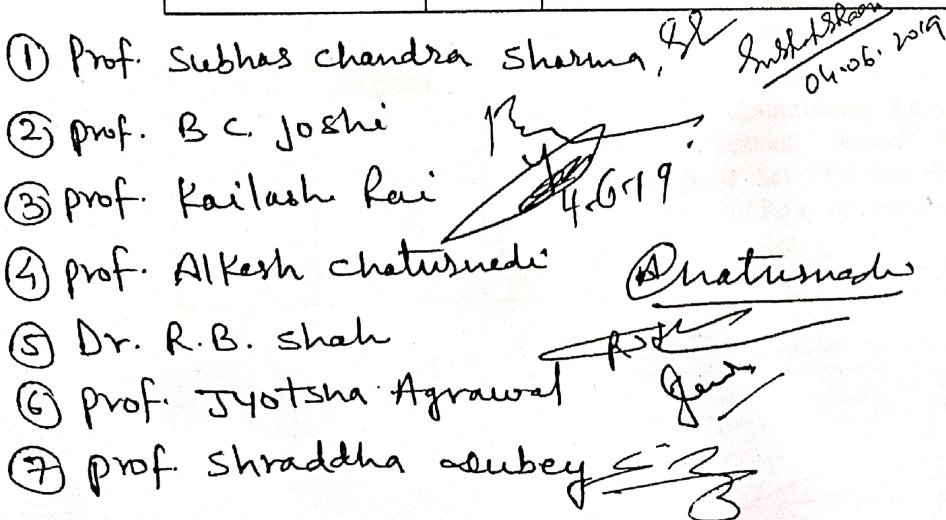 ① Prof. Subhas Chandra Sharma,
04.06.2019
② prof. B C. Joshi
③ prof. Kailash Rai
4.6.19
④ prof. Alkesh Chaturvedi Chaturvedi
⑤ Dr. R.B. Shah
⑥ prof. Jyotsha Agrawal
⑦ prof. Shraddha Dubey